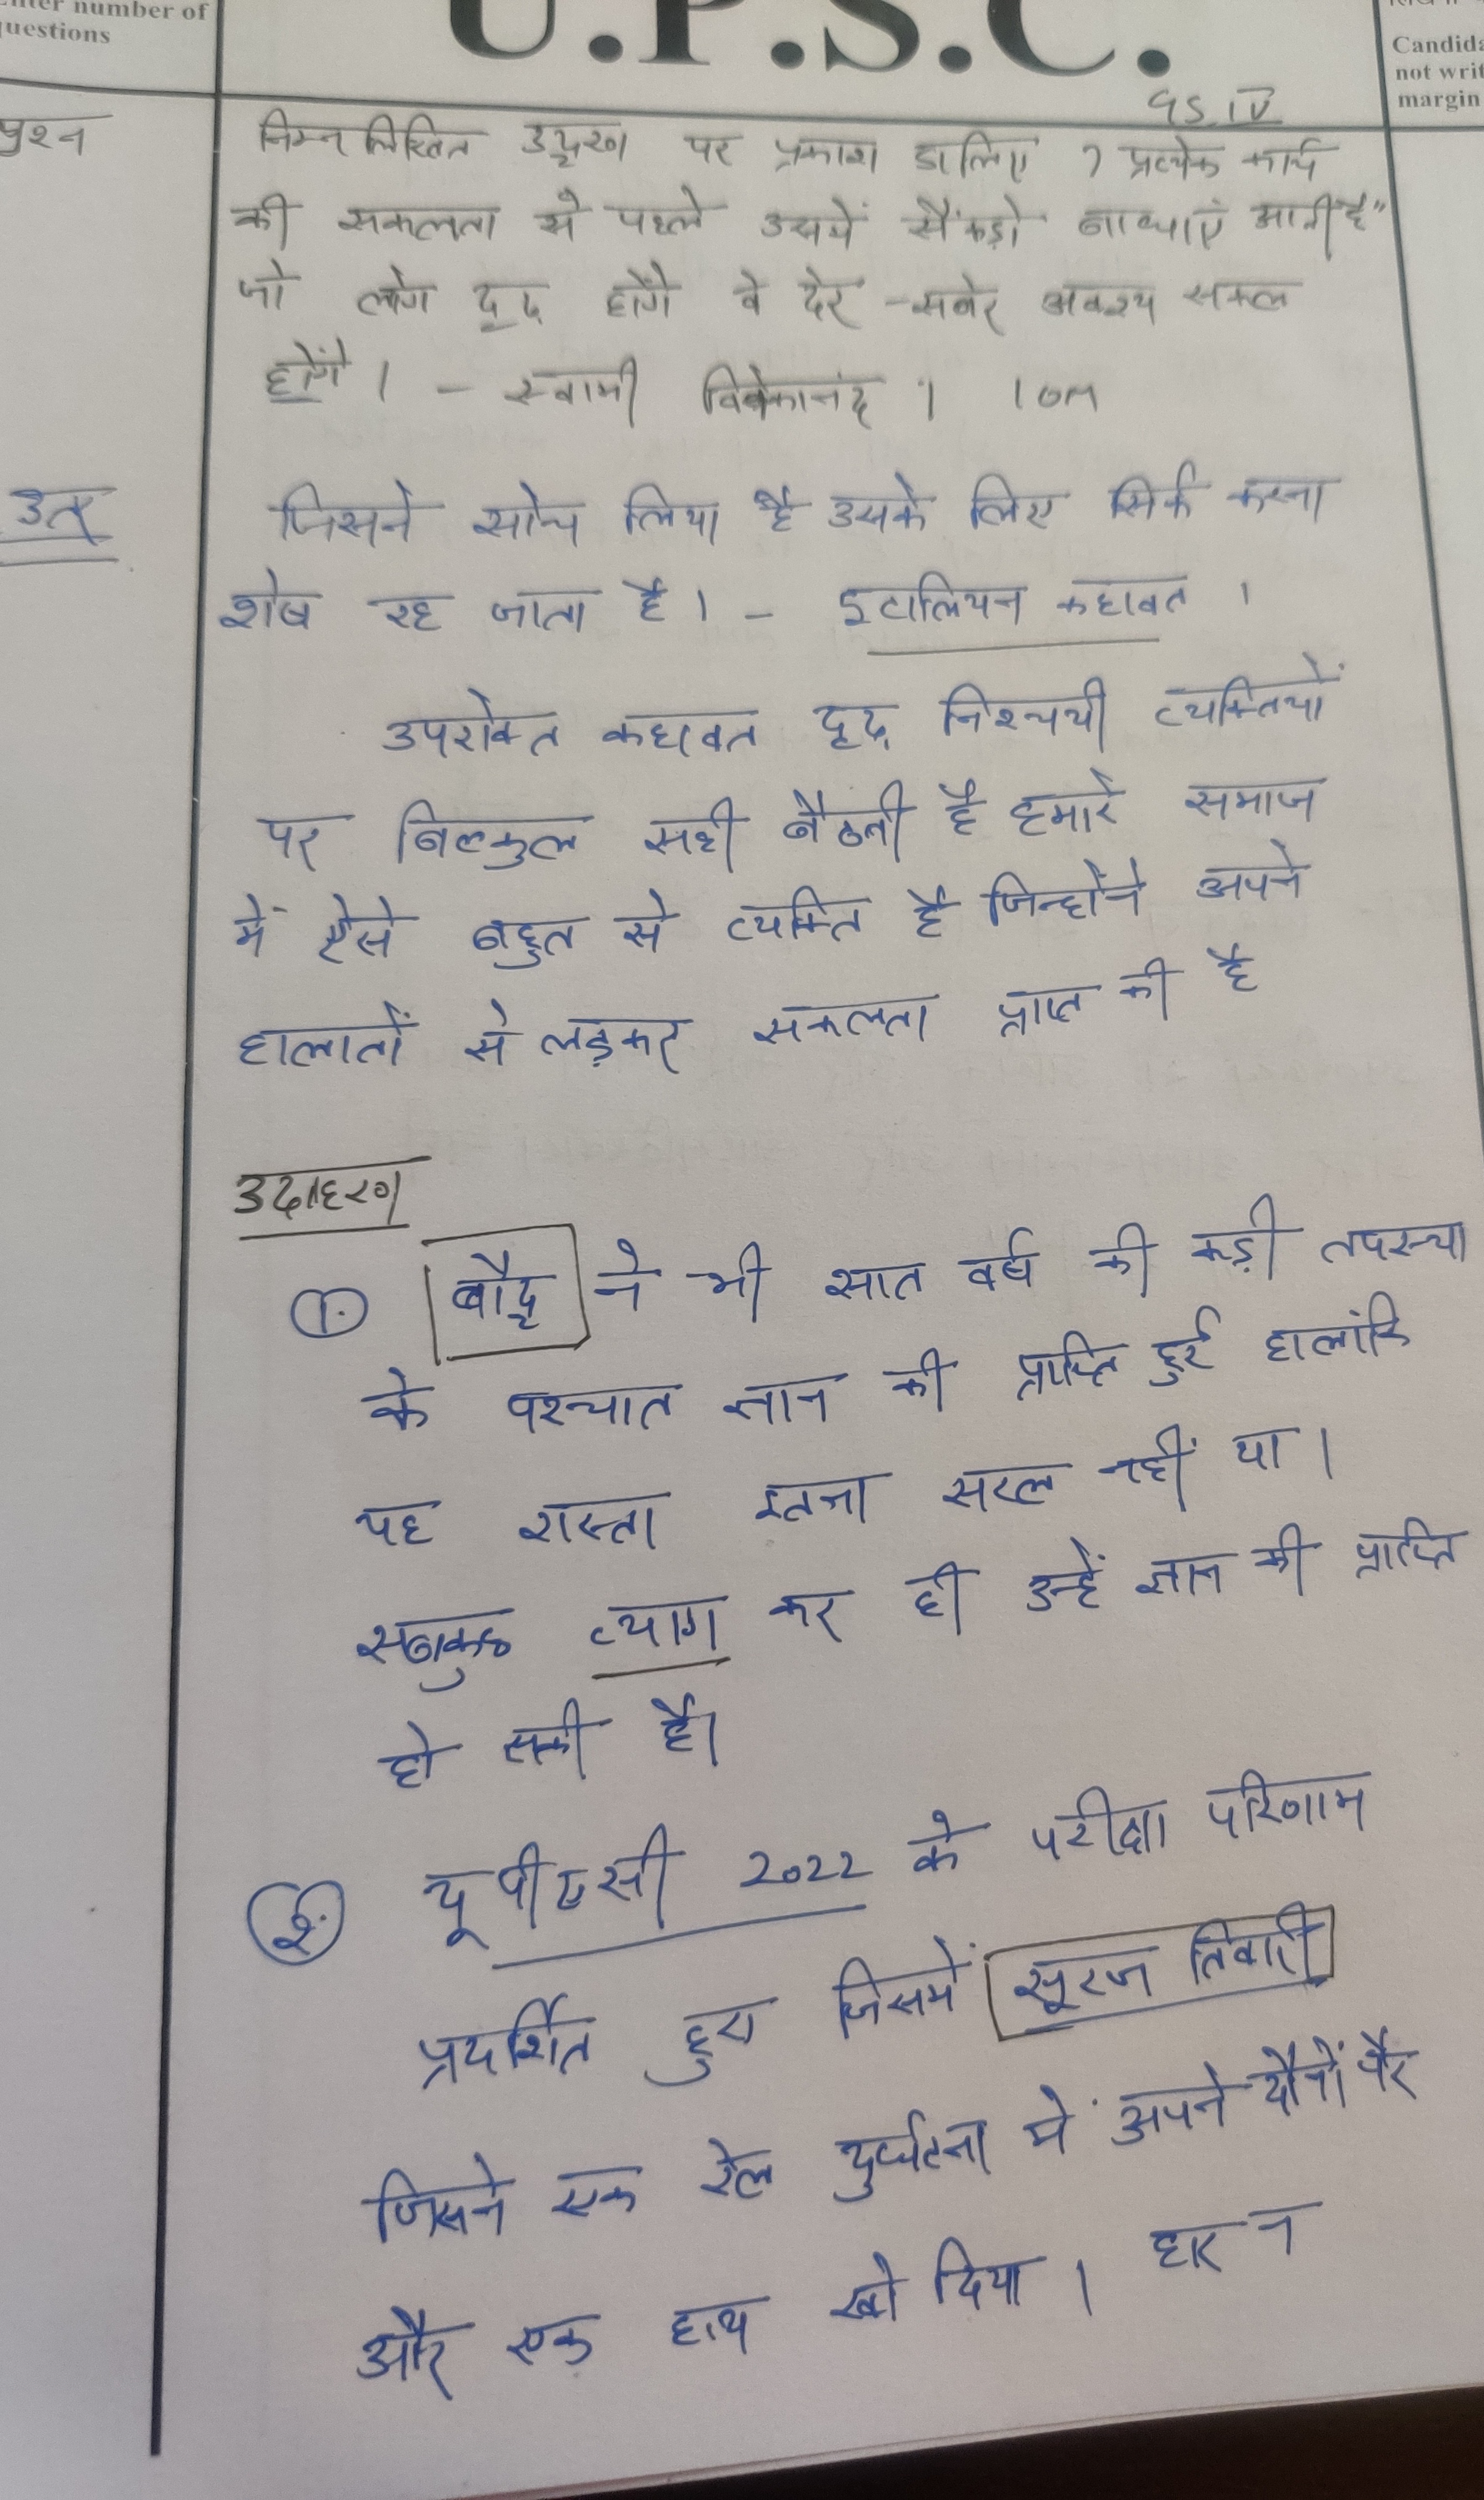 number of
questions
U.P.S.C.
Candida
not writ
margin
GS IV
प्रश्न निम्नलिखित उद्धरण पर प्रकाश डालिए ? प्रत्येक कार्य
की सफलता से पहले उसमें सैंकड़ो बाधाएं आती है"
जो लोग दृढ़ होंगे वे देर-सबेर अवश्य सफल
होंगे । - स्वामी विवेकानंद । 10M
उत्तर जिसने सोच लिया है उसके लिए सिर्फ करना
शेष रह जाता है । - इटालियन कहावत ।
उपरोक्त कहावत दृढ़ निश्चयी व्यक्तियों
पर बिल्कुल सही बैठती है हमारे समाज
में ऐसे बहुत से व्यक्ति है जिन्होंने अपने
हालातों से लड़कर सफलता प्राप्त की है
उदाहरण
1. बौद्ध ने भी सात वर्ष की कड़ी तपस्या
के पश्चात ज्ञान की प्राप्ति हुई हालांकि
यह रास्ता इतना सरल नहीं था ।
सबकुछ त्याग कर ही उन्हें ज्ञान की प्राप्ति
हो सकी है।
2. यूपीएससी 2022 के परीक्षा परिणाम
प्रदर्शित हुए जिसमें सूरज तिवारी
जिसने एक रेल दुर्घटना में अपने दोनों पैर
और एक हाथ खो दिया । हार न